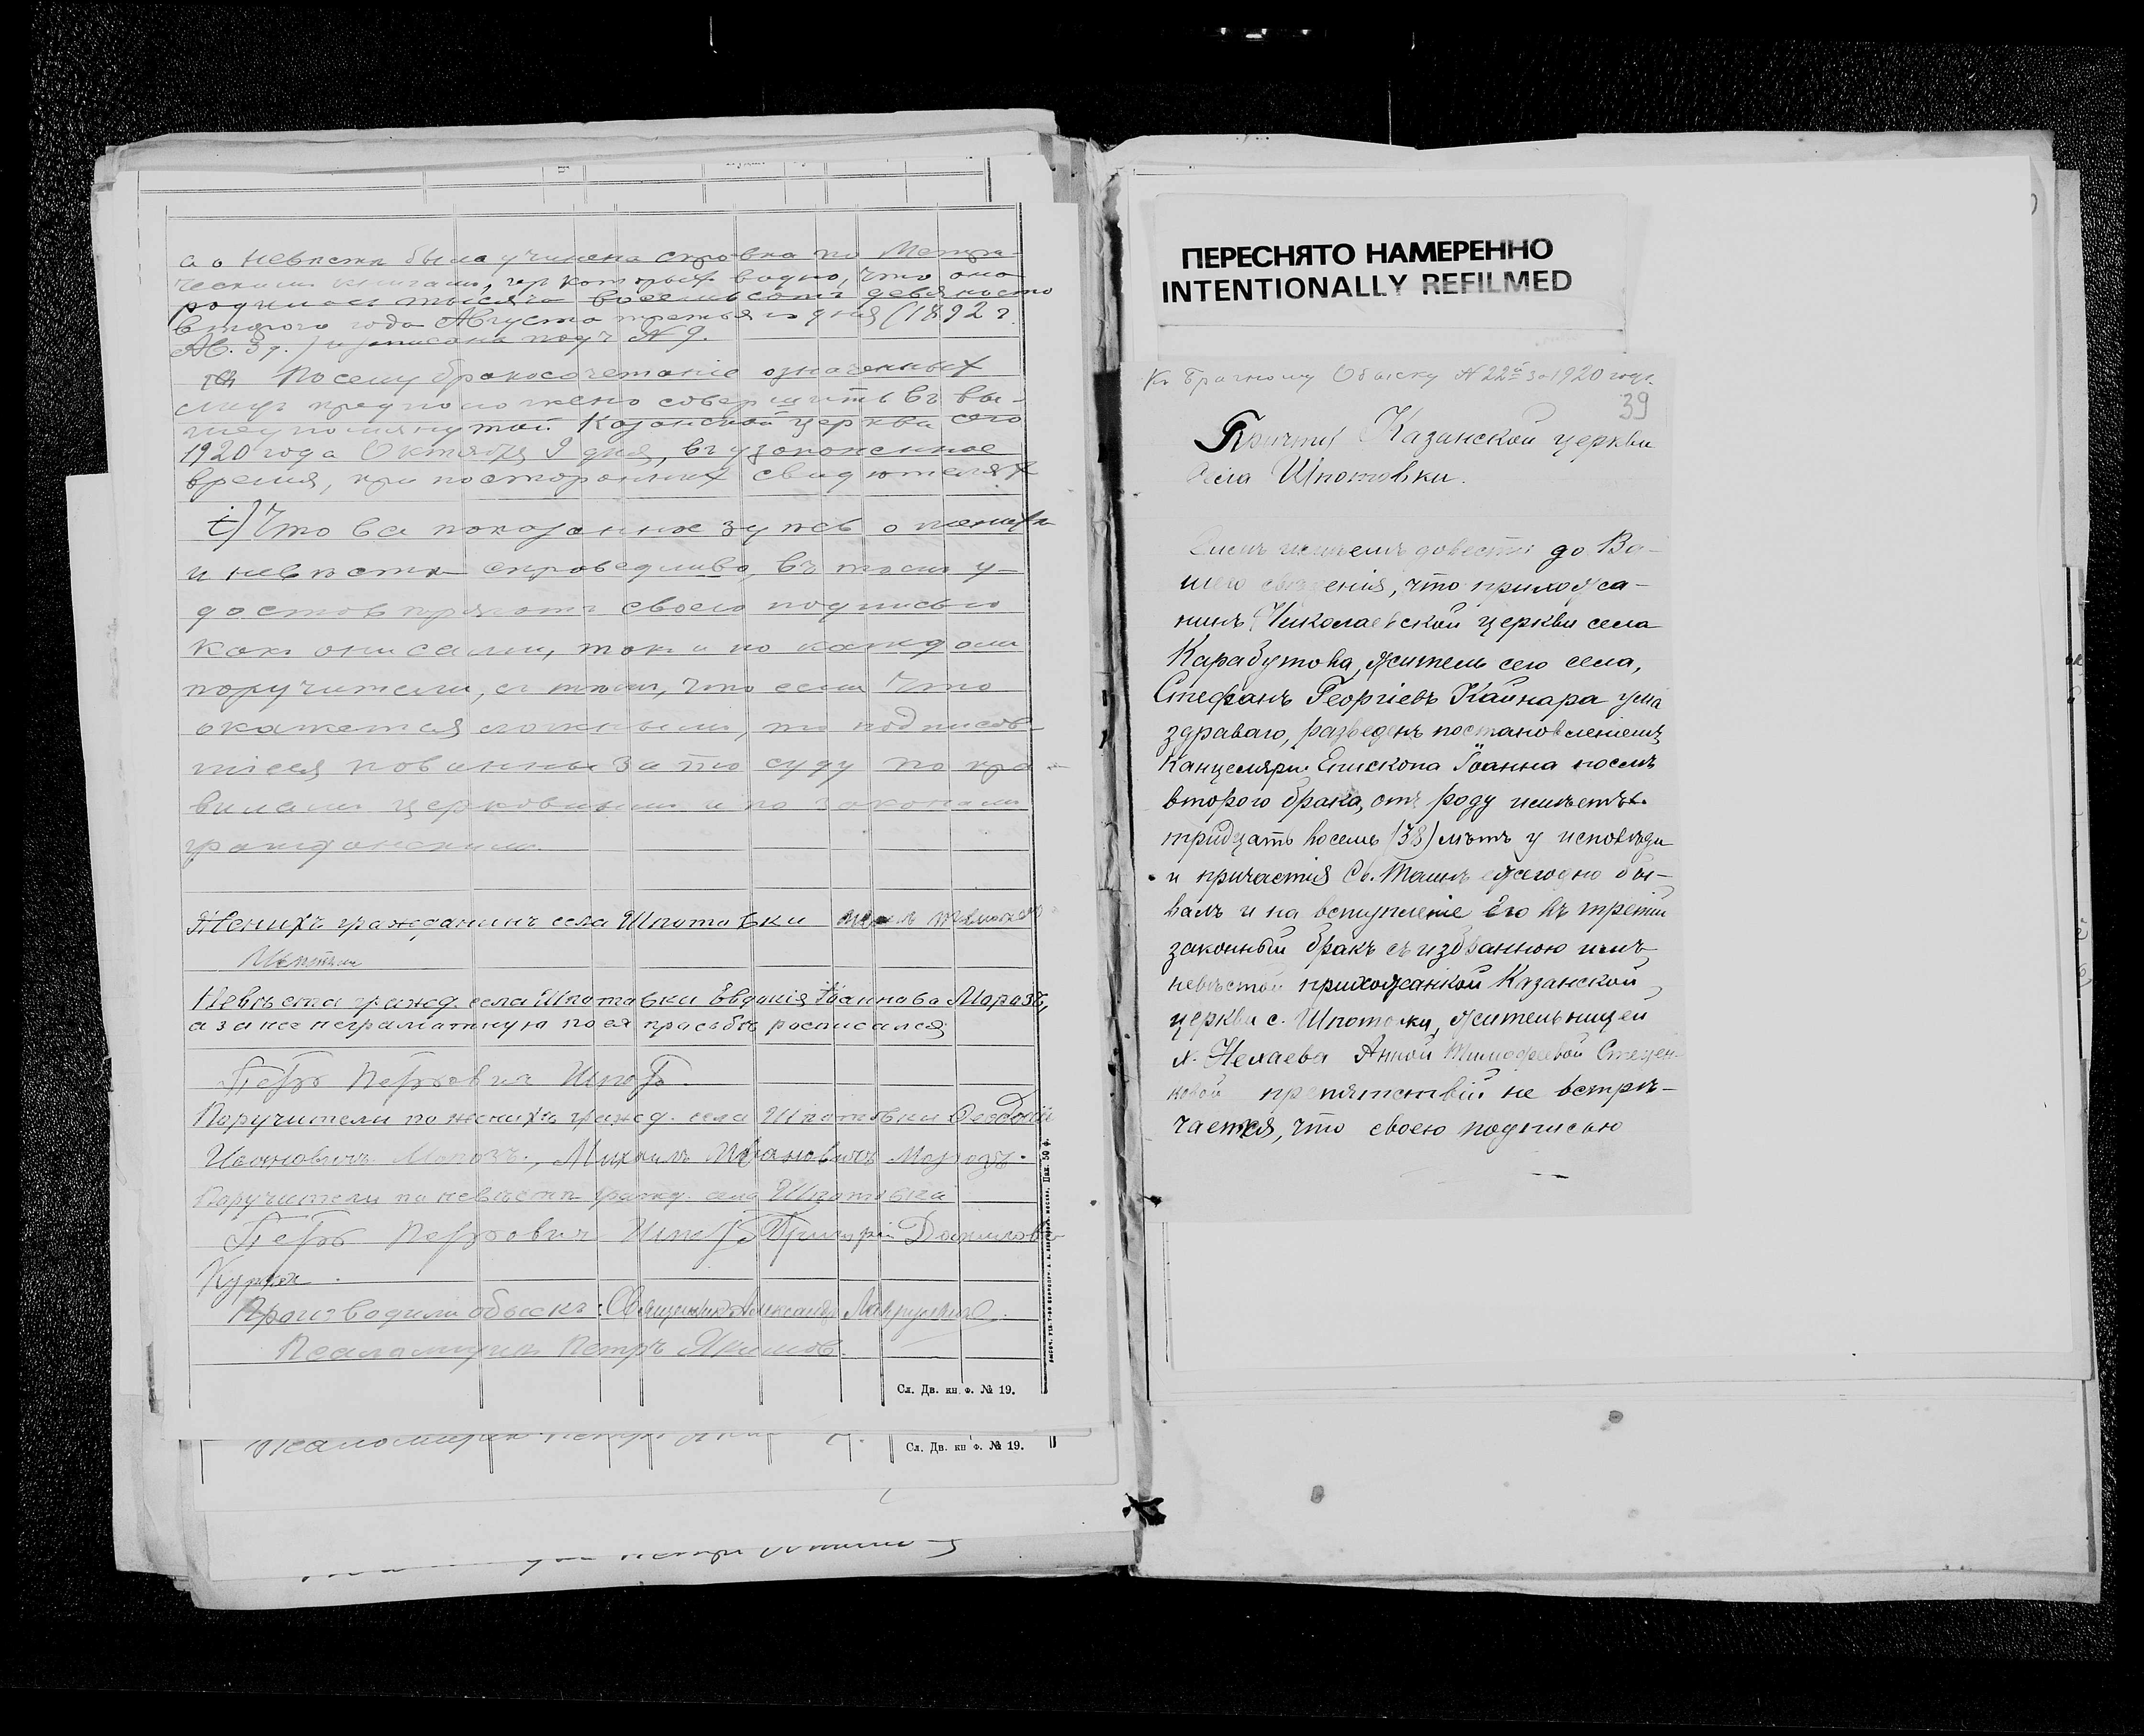 а о невѣстѣ была учинена справка по Метри-
ческимъ книгамъ, изъ которыхъ видно, что она
родилась тысяча восемьсотъ девяносто
второго года Августа третьяго дня (1892 г.
Ав. 3 д.) и записана подъ № 9.
Посему бракосочетаніе означенныхъ
лицъ предположено совершить въ вы-
шеупомянутой Казанской церкви сего
1920 года Октября 9 дня, въ узаконенное
время, при постороннихъ свидѣтеляхъ
і) Что все показанное здѣсь о женихѣ
и невѣстѣ справедливо, въ томъ у-
достовѣряютъ своею подписью
какъ они сами, такъ и по каждомъ
поручители, съ тѣмъ, что если что
окажется ложнымъ, то подписав-
шіеся повинны за то суду по пра-
виламъ церковнымъ и по законамъ
гражданскимъ.
Женихъ гражданинъ села Шпотовки
Невѣста гражд. села Шпотовки Евдокія Іоаннова Морозъ,
а за нее неграматную по ея просьбѣ росписался
Петръ Петровичъ Шпотъ.
Поручители по женихѣ гражд. села Шпотовки Феодосій
Ивановичъ Морозъ, Михаилъ Ивановичъ Морозъ.
Поручители по невѣстѣ гражд. села Шпотовки
Петръ Петровичъ Шпотъ Григорій Даниловъ
Производили обыскъ: Священникъ Александръ
Псаломщикъ Петръ Якимовъ.
Сл. Дв. кн. ф. № 19.
Сл. Дв. кн. ф. № 19.
ПЕРЕСНЯТО НАМЕРЕННО
INTENTIONALLY REFILMED
Къ Брачному Обыску № 22й за 1920 годъ.
39
Причту Казанской церкви
Села Шпотовки.
Симъ имѣемъ довести до Ва-
шего свѣденія, что прихожа-
нинъ Николаевской церкви села
Карабутова, житель сего села,
Стефанъ Георгіевъ Кайнара ума
здраваго, разведенъ постановленіемъ
Канцеляріи Епископа Іоанна послѣ
второго брака, отъ роду имѣетъ
тридцать восемь (38) лѣтъ у исповѣди
и причастія Св. Таинъ ежегодно бы-
валъ и на вступленіе Его въ третій
законный бракъ съ избранною имъ
невѣстой прихожанкой Казанской
церкви с. Шпотовки, жительницей
х. Нелаева Анной Тимофеевой Стецен-
ковой препятствій не встрѣ-
чается, что своею подписью